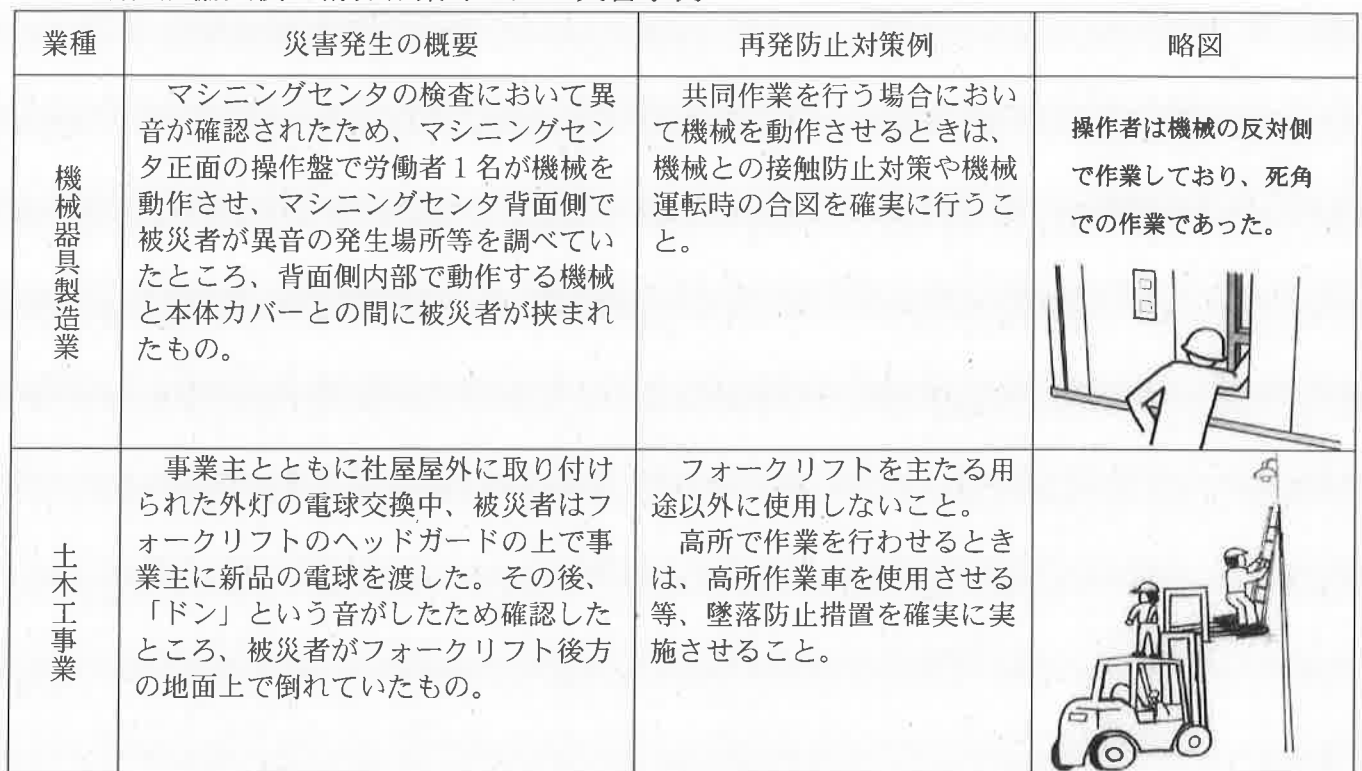 業種
災害発生の概要
再発防止対策例
略図
機械器具製造業
マシニングセンタの検査において異
音が確認されたため、マシニングセン
タ正面の操作盤で労働者1名が機械を
動作させ、マシニングセンタ背面側で
被災者が異音の発生場所等を調べてい
たところ、背面側内部で動作する機械
と本体カバーとの間に被災者が挟まれ
たもの。
共同作業を行う場合におい
て機械を動作させるときは、
機械との接触防止対策や機械
運転時の合図を確実に行うこ
と。
操作者は機械の反対側
で作業しており、死角
での作業であった。
土木工事業
事業主とともに社屋屋外に取り付け
られた外灯の電球交換中、被災者はフ
ォークリフトのヘッドガードの上で事
業主に新品の電球を渡した。その後、
「ドン」という音がしたため確認した
ところ、被災者がフォークリフト後方
の地面上で倒れていたもの。
フォークリフトを主たる用
途以外に使用しないこと。
高所で作業を行わせるとき
は、高所作業車を使用させる
等、墜落防止措置を確実に実
施させること。